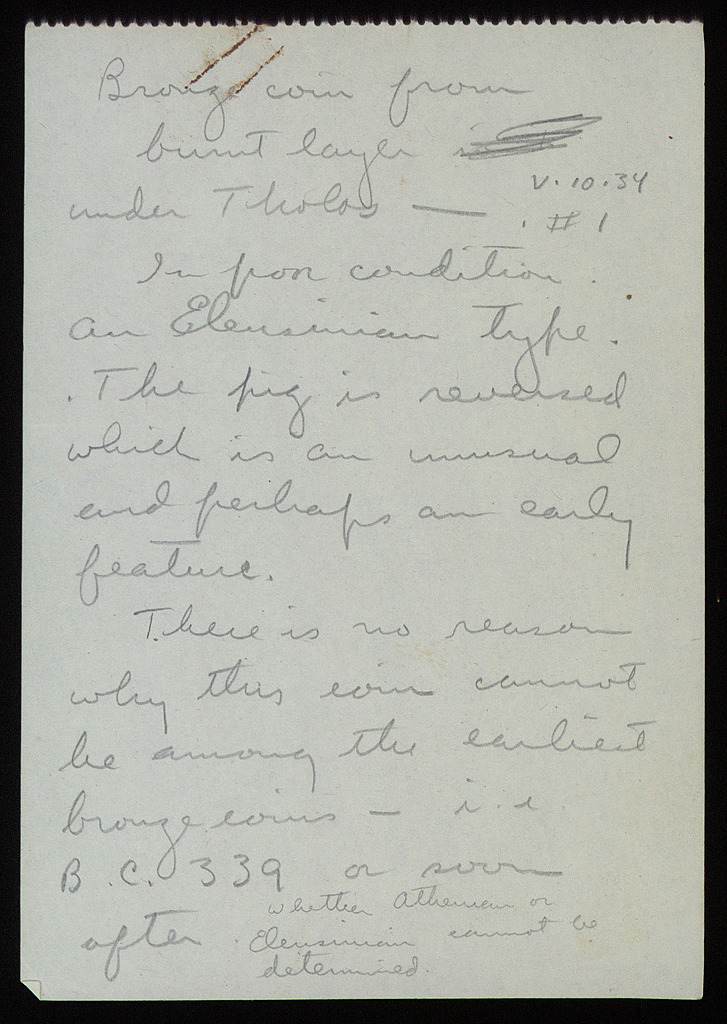 Bronze coin from
burnt layer
under Tholos —
V.10.34
# 1
In poor condition.
an Eleusinian type.
The pig is reversed
which is an unusual
and perhaps an early
feature.
There is no reason
why this coin cannot
be among the earliest
bronze coins — i.e.
B.C. 339 or soon
after.
whether Athenian or
Eleusinian cannot be
determined.